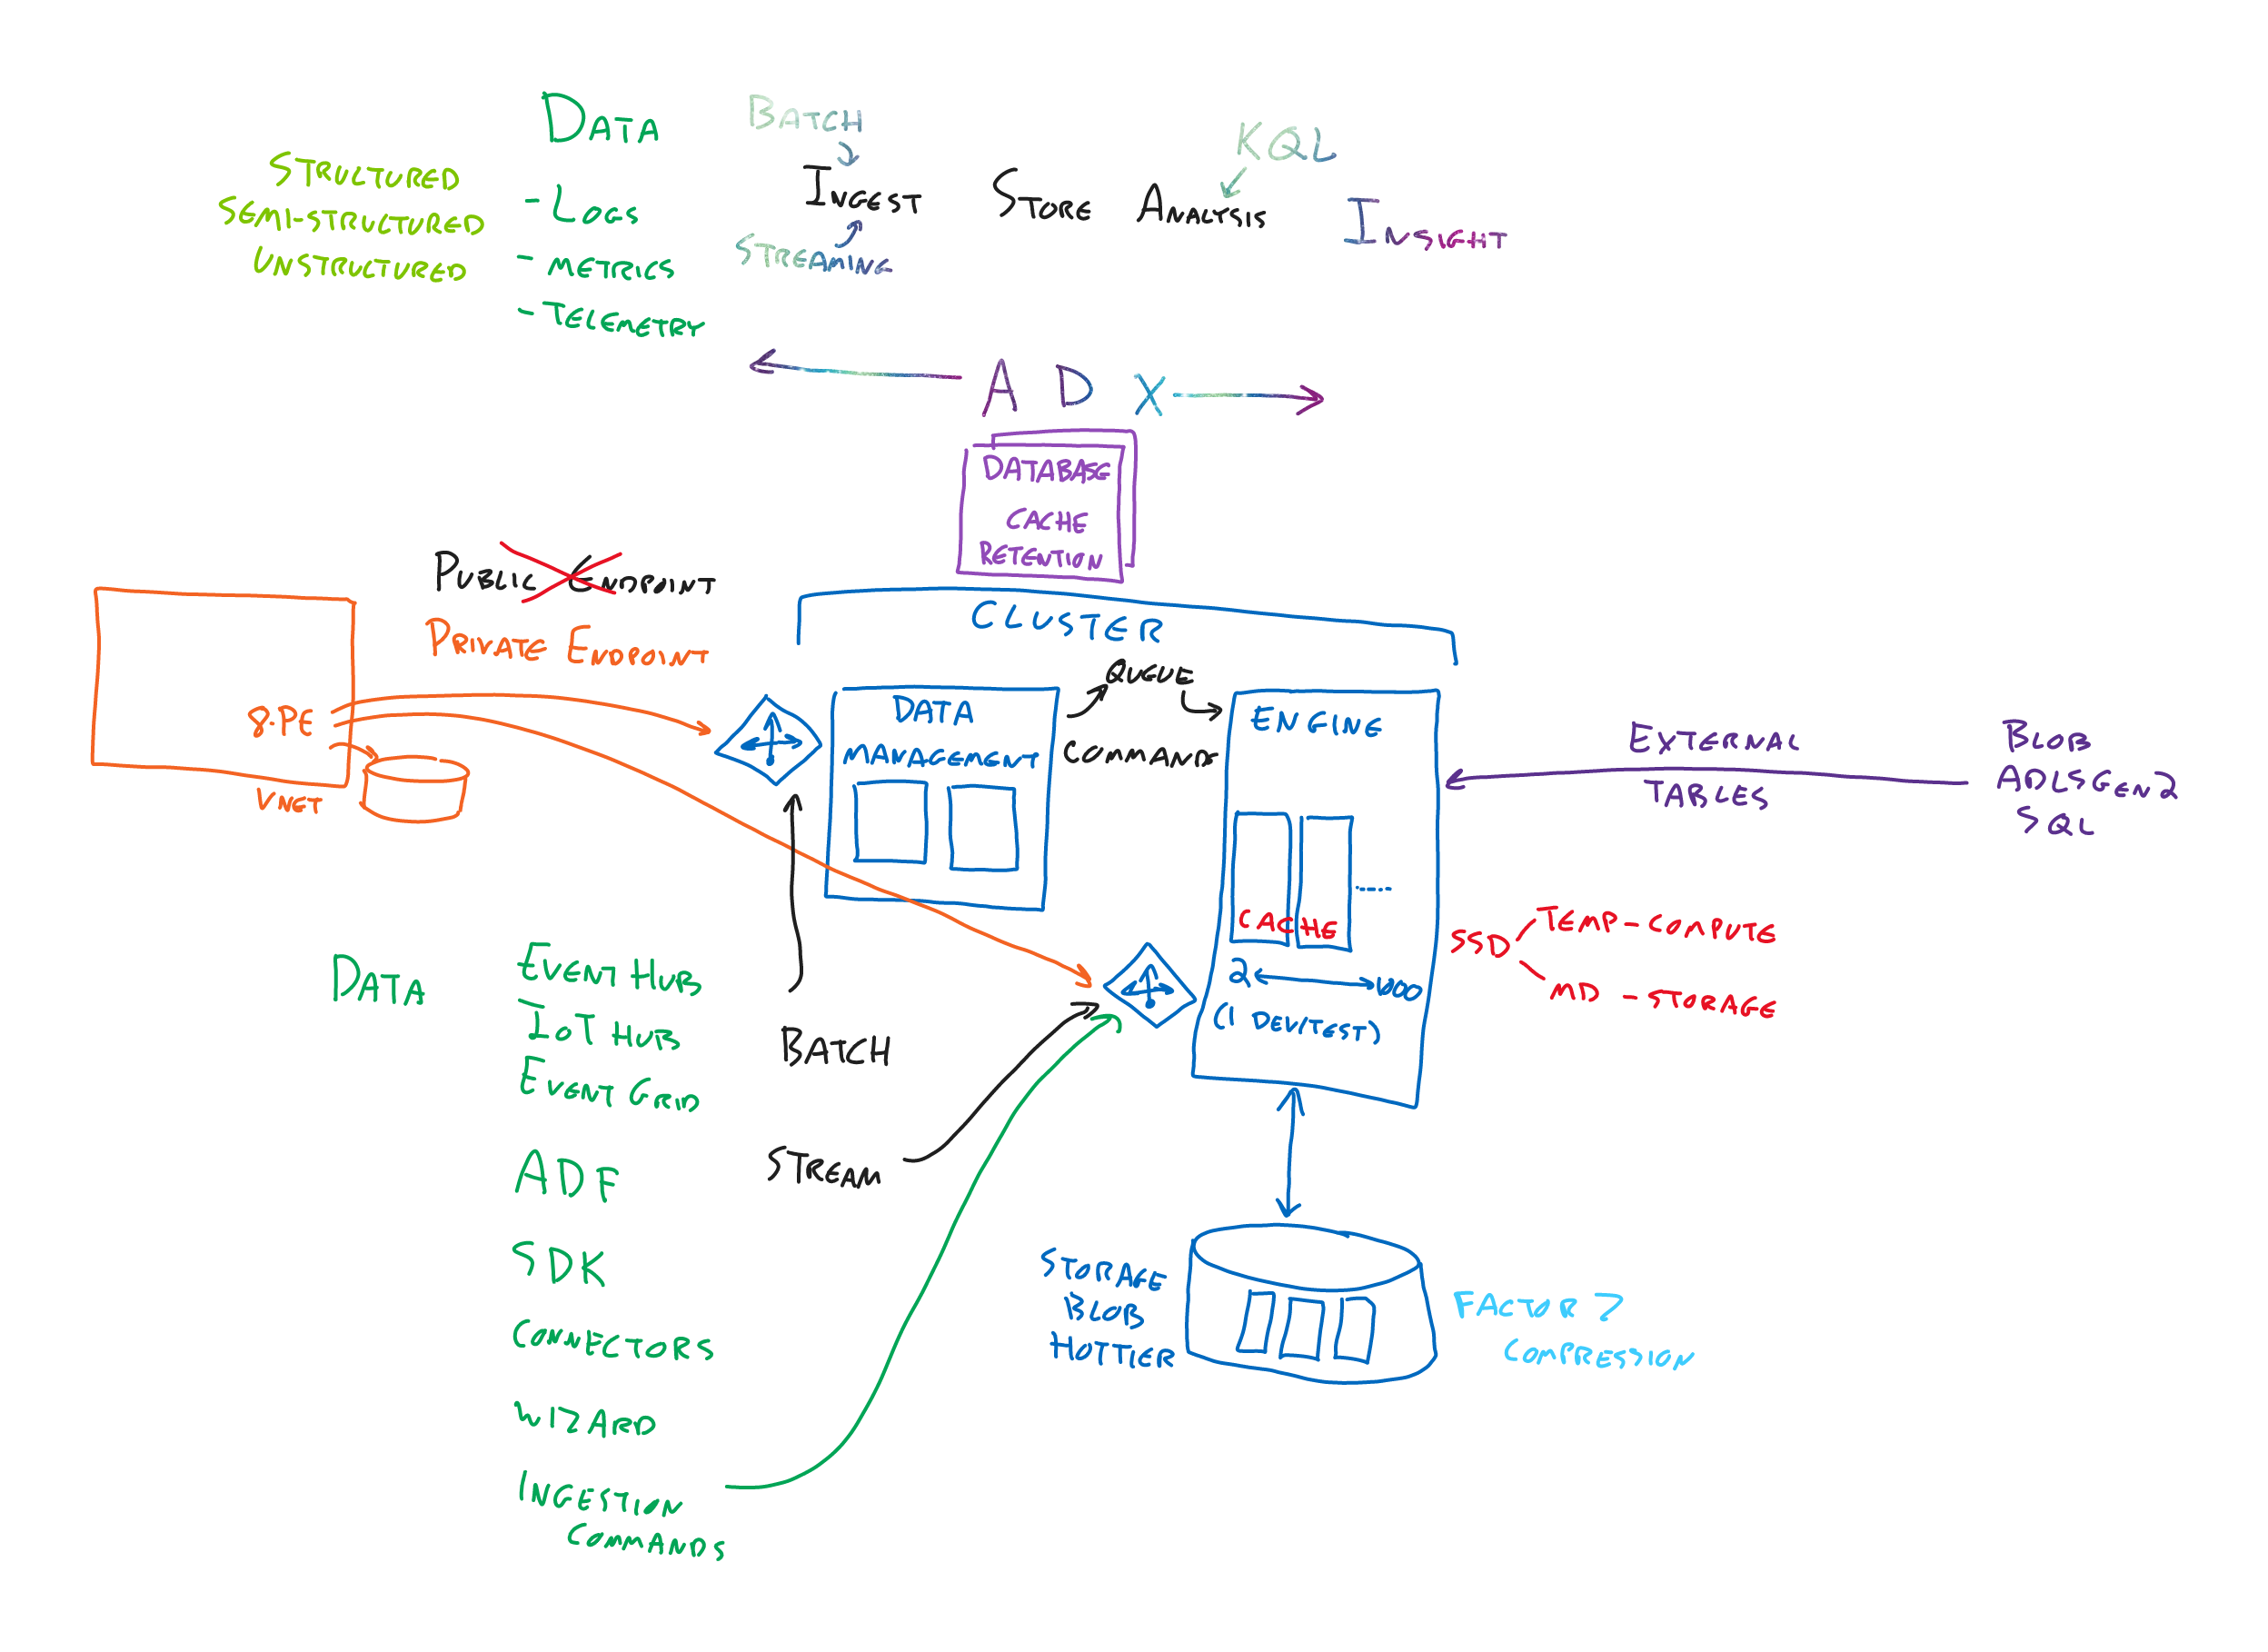 DATA
- LOGS
- METRICS
- TELEMETRY
STRUCTURED
SEMI-STRUCTURED
UNSTRUCTURED
BATCH
INGEST
STREAMING
STORE
KQL
ANALYSIS
INSIGHT
A D X
DATABASE
CACHE
RETENTION
PUBLIC ENDPOINT
PRIVATE ENDPOINT
8·PE
VNET
CLUSTER
DATA
MANAGEMENT
QUEUE
COMMAND
ENGINE
CACHE
2
1000
(1 DEV/TEST)
EXTERNAL
TABLES
BLOB
ADLSGEN2
SQL
SSD
TEMP - COMPUTE
MD - STORAGE
DATA
EVENT HUB
IOT HUB
EVENT GRID
ADF
SDK
CONNECTORS
WIZARD
INGESTION
COMMANDS
BATCH
STREAM
STORAGE
BLOB
HOT TIER
FACTOR 7
COMPRESSION